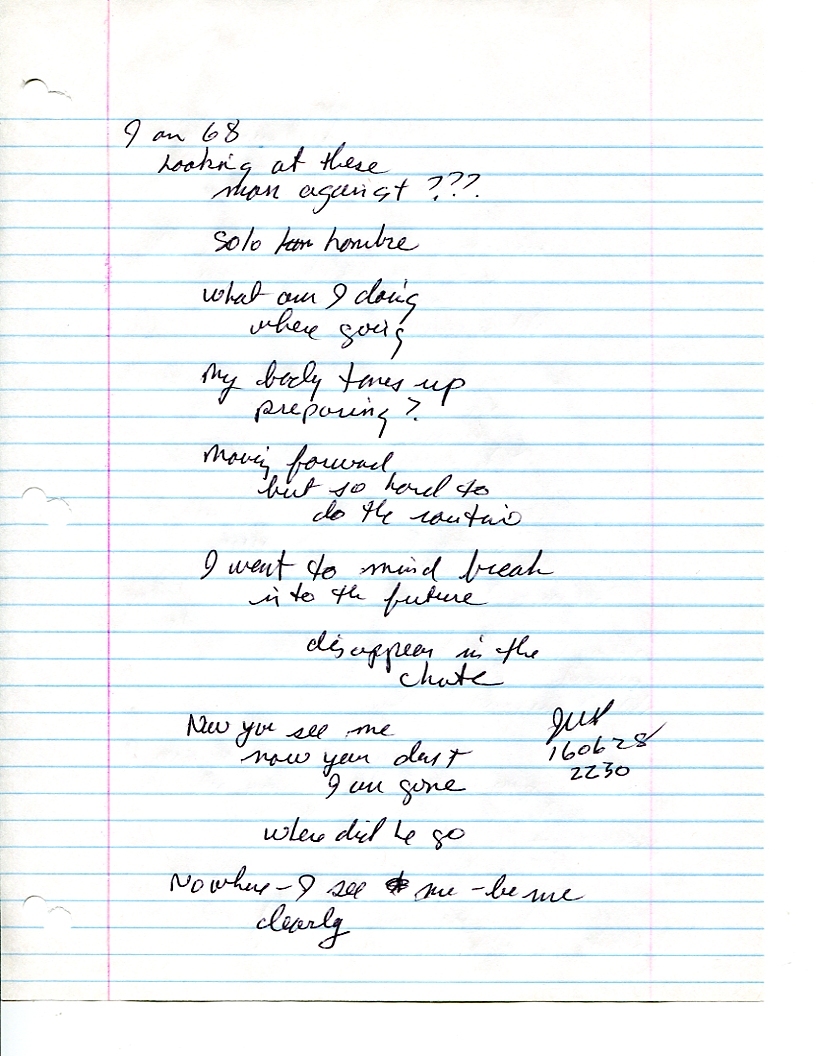 I am 68
Looking at these
man against ???
Solo hombre
what am I doing
where going
My body tones up
preparing?
Moving forward
but so hard to
do the
I want to mind break
into the future
disappear in the
chute
Now you see me
now you don't
I am gone
160628
2230
where did he go
Nowhere - I see me - be me
clearly